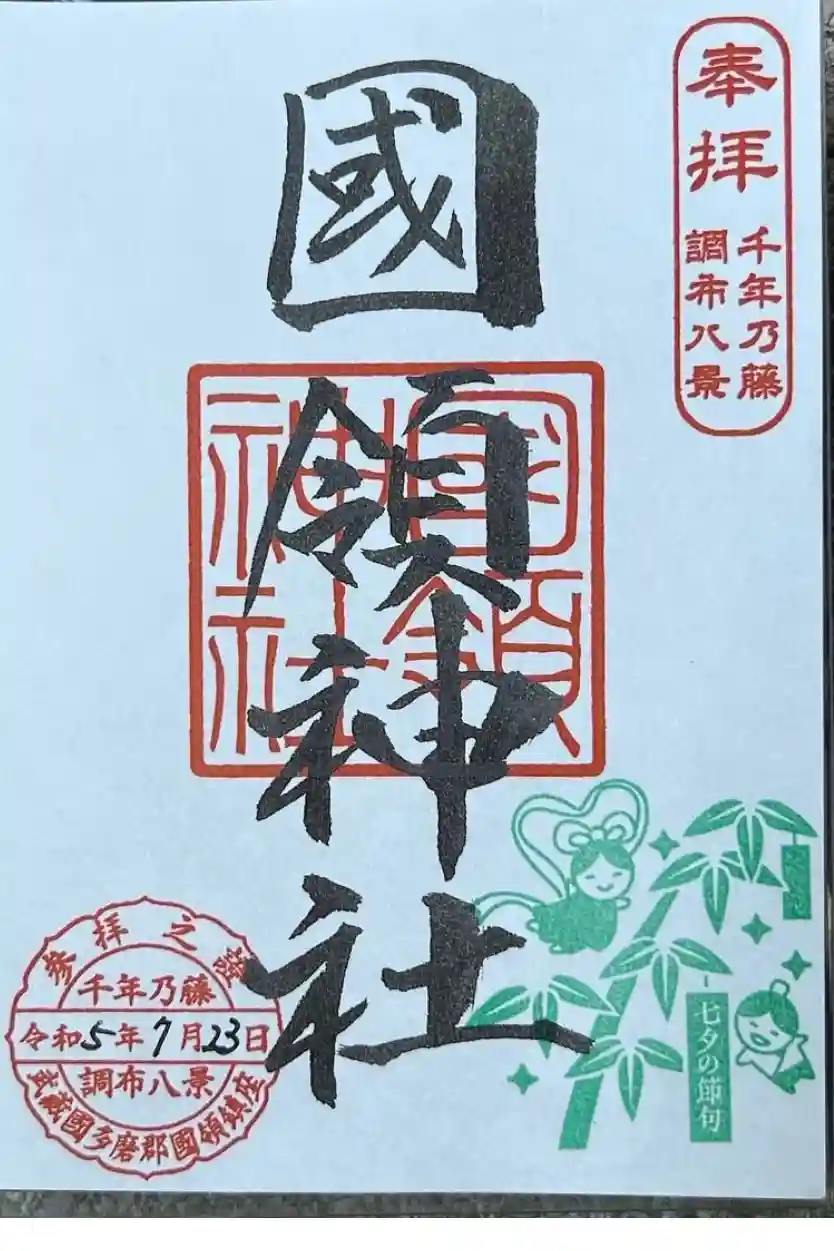 奉拝
千年乃藤
調布八景
國領神社
國領
神社
参拝之證
千年乃藤
令和5年7月23日
調布八景
武蔵國多磨郡國領鎮座
七夕の節句